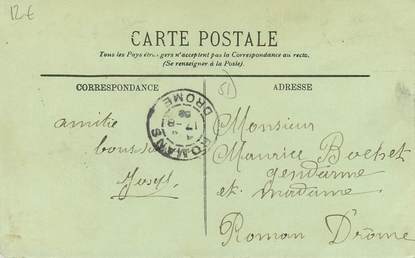 12€
CARTE POSTALE
Tous les Pays étrangers n'acceptent pas la Correspondance au recto.
(Se renseigner à la Poste).
CORRESPONDANCE
ADRESSE
51
ROMANS
DROME
17
amitie
Joseph
Monsieur
Maurice Bochet
gendarme
et madame
Roman Drôme